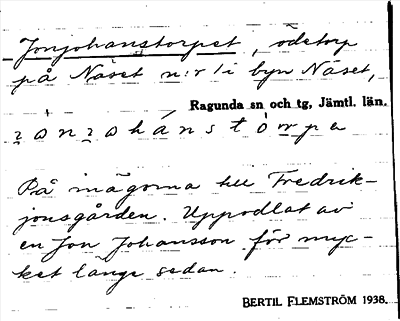 Jonjohanstorpet, ödetorp
på Näset n:r 1 i byn Näset,
Ragunda sn och tg, Jämtl. län.
På mägorna till Fredrik-
jonsgården. Uppodlat av
en Jon Johansson för myc-
ket länge sedan.
BERTIL FLEMSTRÖM 1938.